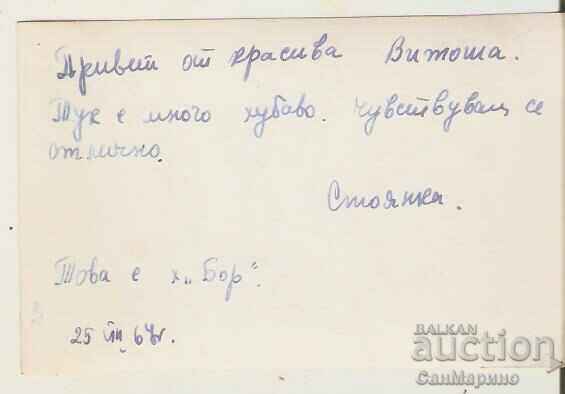 Привет от красива Витоша.
Тук е много хубаво. Чувствувам се
отлично.
Стоянка.
Това е х. „Бор“.
25 VIII 67г.
BALKAN
auction
СанМарино